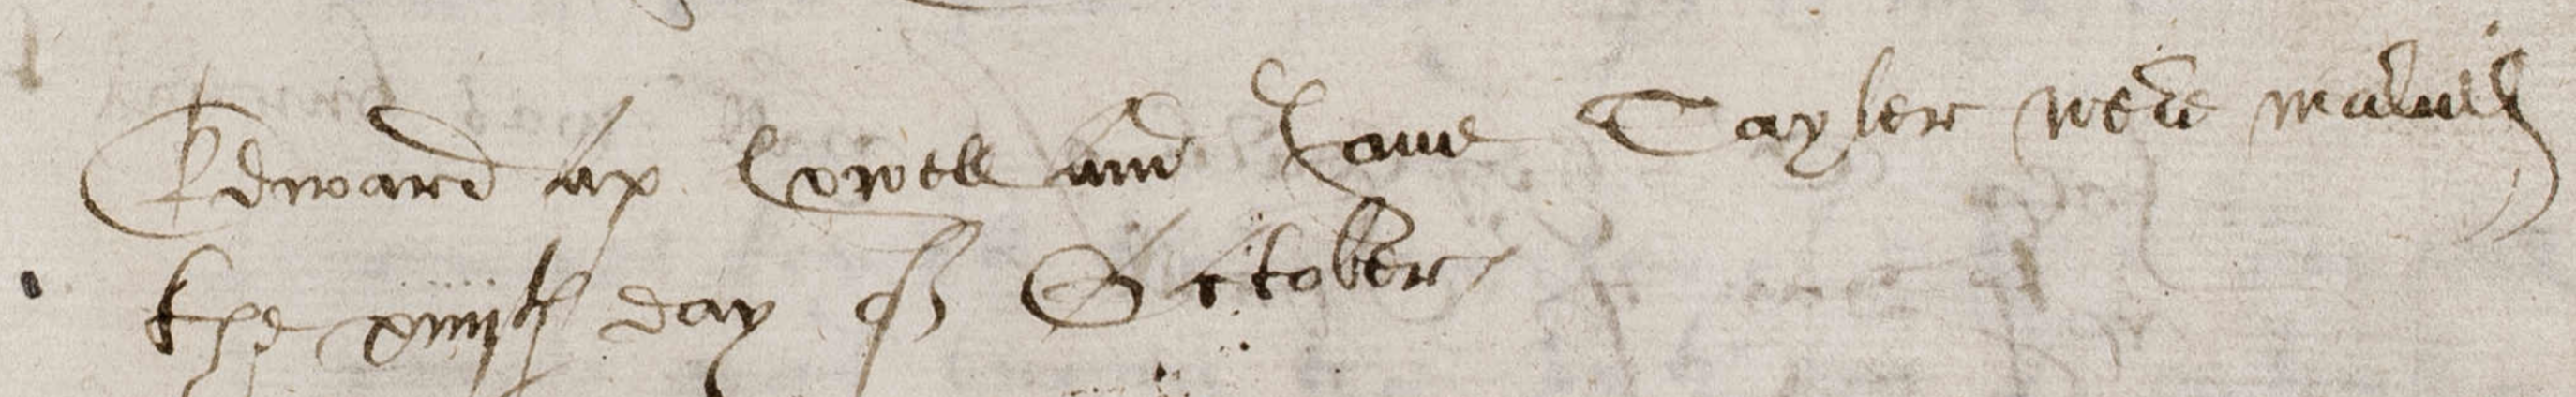 Edward ap howell and Jane Tayler were maried
the xiiijth day of October